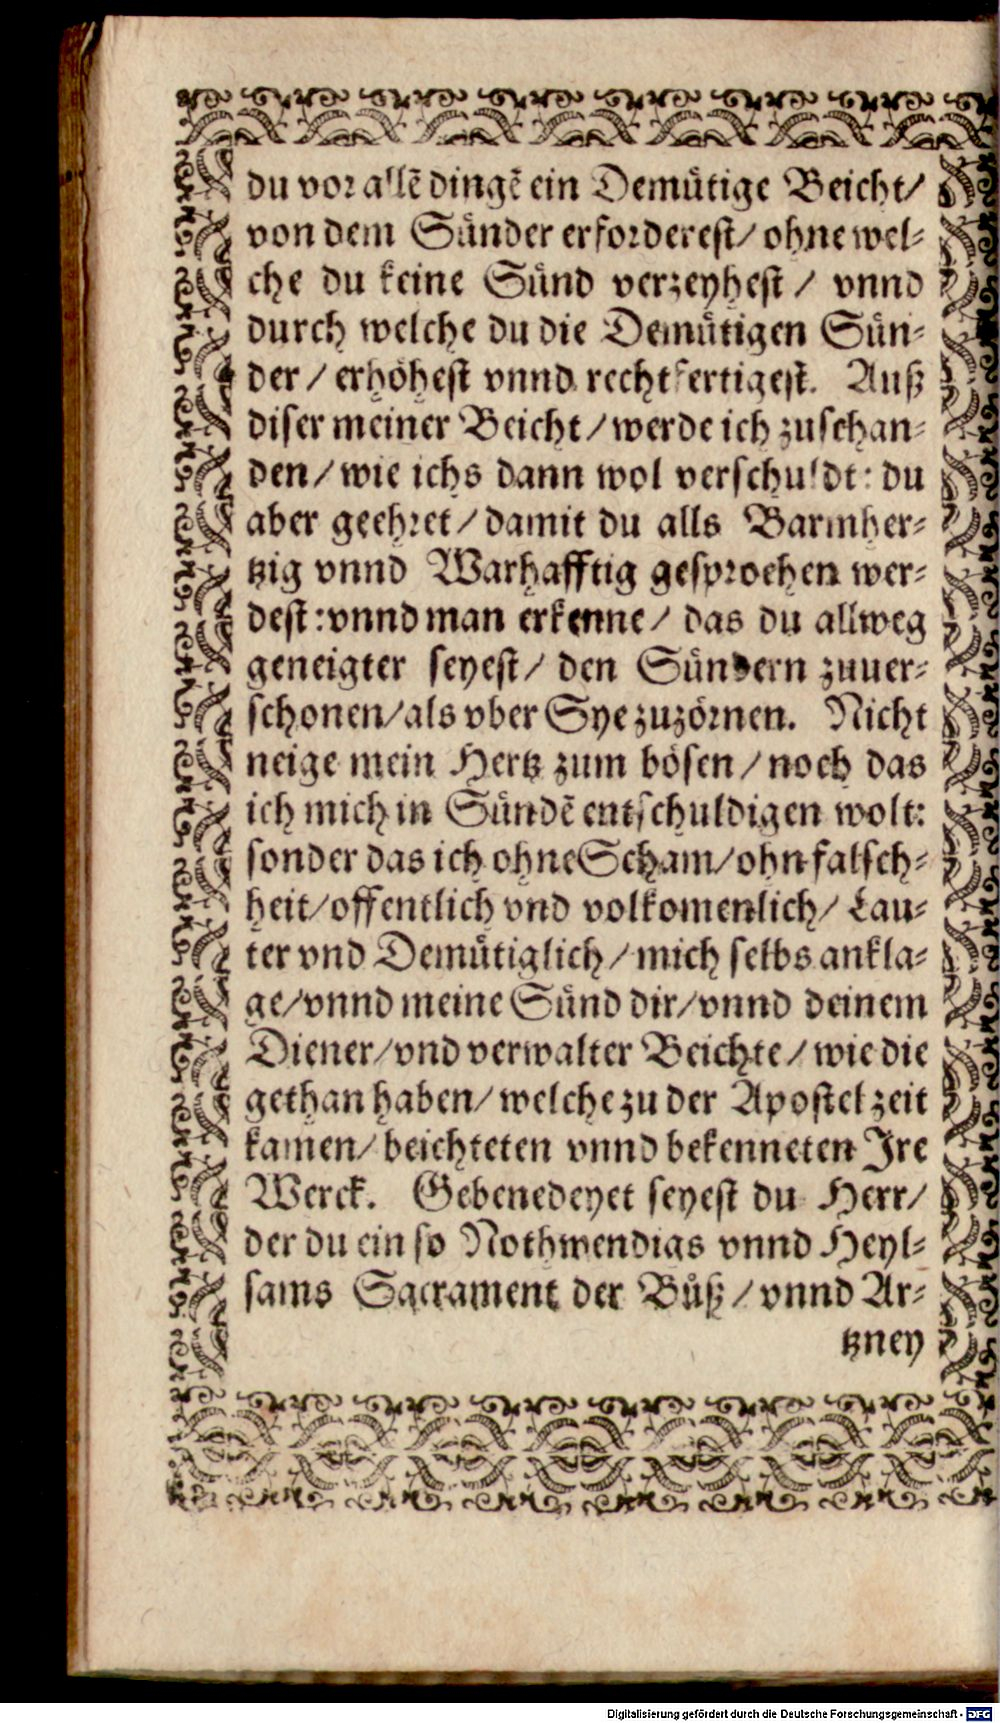 du vor allē dingē ein Demütige Beicht/
von dem Sünder erforderest/ ohne wel-
che du keine Sünd verzeyhest / vnnd
durch welche du die Demütigen Sün-
der / erhöhest vnnd rechtfertigest. Auß
diser meiner Beicht / werde ich zuschan-
den / wie ichs dann wol verschuldt: du
aber geehret / damit du alls Barmher-
tzig vnnd Warhafftig gesprochen wer-
dest: vnnd man erkenne / das du allweg
geneigter seyest / den Sündern zuuer-
schonen/ als vber Sye zuzörnen. Nicht
neige mein Hertz zum bösen / noch das
ich mich in Sündē entschuldigen wolt:
sonder das ich ohne Scham/ ohn falsch-
heit/ offentlich vnd volkomenlich/ Lau-
ter vnd Demütiglich / mich selbs ankla-
ge/ vnnd meine Sünd dir/ vnnd deinem
Diener/ vnd verwalter Beichte / wie die
gethan haben/ welche zu der Apostel zeit
kamen/ beichteten vnnd bekenneten Jre
Werck. Gebenedeyet seyest du Herr/
der du ein so Nothwendigs vnnd Heyl-
sams Sacrament der Büß / vnnd Ar-
tzney
Digitalisierung gefördert durch die Deutsche Forschungsgemeinschaft - DFG